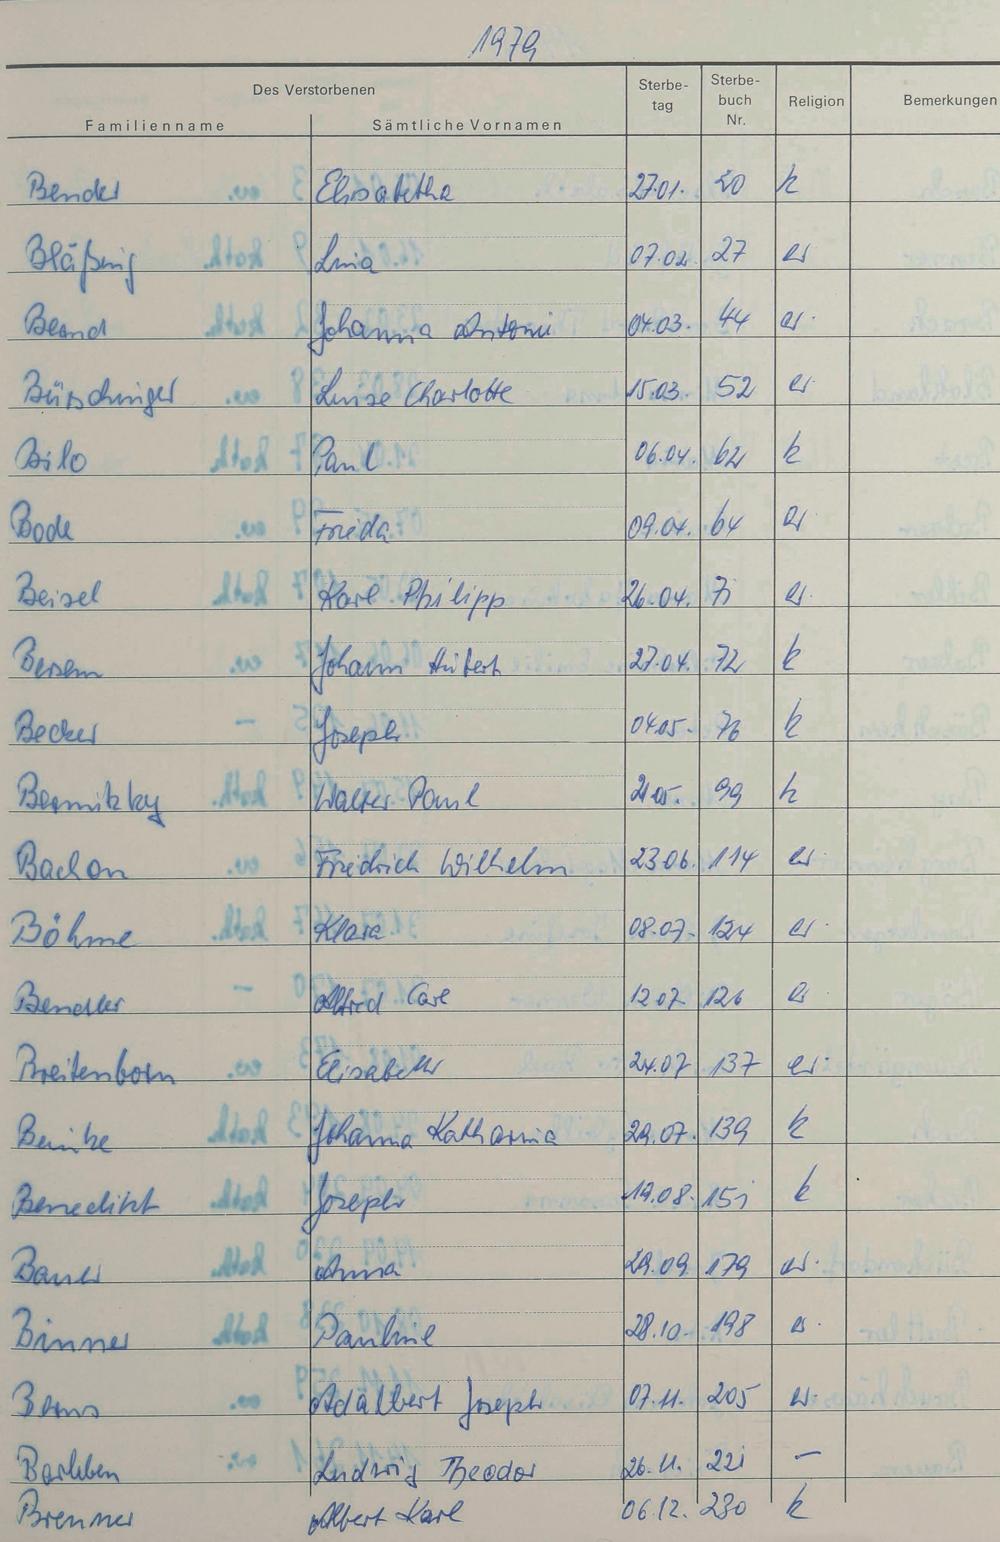 1979
Des Verstorbenen
Familienname Sämtliche Vornamen Sterbe-tag Sterbe-buch Nr. Religion Bemerkungen
Bender Elisabetha 27.01. 20 k
Bläßing Luia 07.02. 27 ev.
Brand Johanna Antoni 04.03. 44 ev.
Bürschinger Luise Charlotte 15.03. 52 ev.
Bilo Paul 06.04. 62 k
Bode Frieda 09.04. 64 ev.
Beisel Karl Philipp 26.04. 71 ev.
Bersem Johann Hubert 27.04. 72 k
Becker Joseph 04.05. 76 k
Walter Paul 21.05. 99 k
Bachon Friedrich Wilhelm 23.06. 114 ev.
Böhme Klara 08.07. 124 ev.
Bendler Alfred Carl 12.07. 126 ev.
Breitenborn Elisabeth 24.07. 137 ev.
Johanna Katharina 29.07. 139 k
Benedikt Joseph 19.08. 151 k
Bauer Anna 29.09. 179 ev.
Binner Pauline 28.10. 198 ev.
Berns Adalbert Joseph 07.11. 205 ev.
Barleben Ludwig Theodor 26.11. 221 —
Brenner Albert Karl 06.12. 230 k